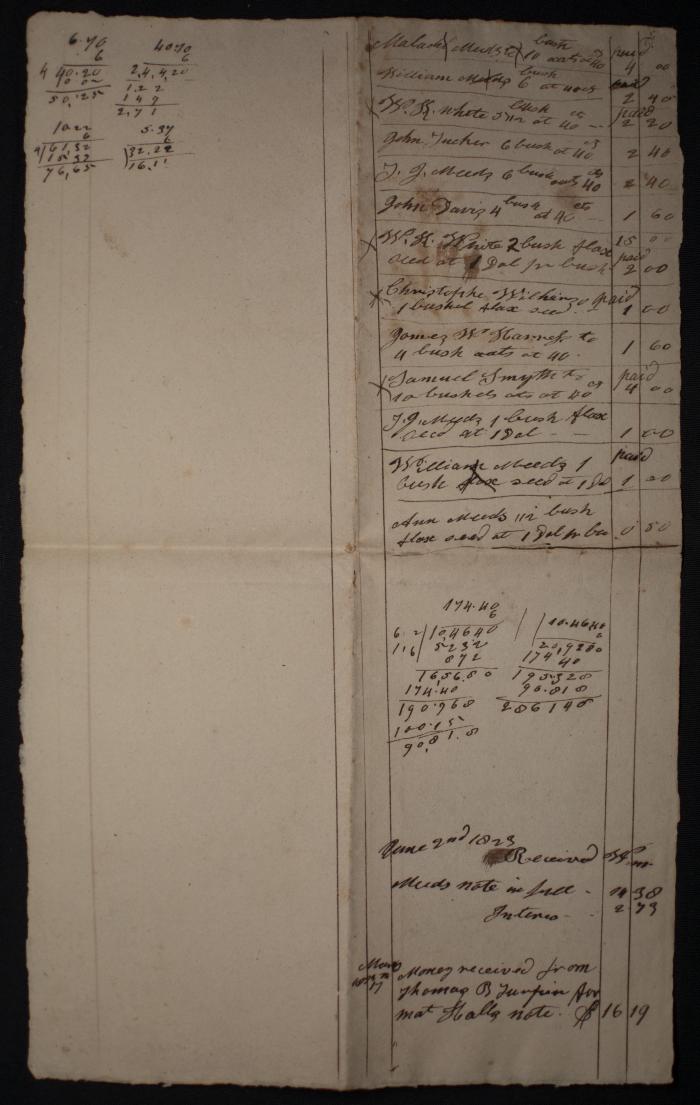 6.70
6
4 40.20
10 05
50,25
4070
6
2,4,4,20
1,2 2
1 4 9
2,7 1
1022
6
4) 61,32
15 33
76,65
5.37
6
) 32,22
16,11
Malachi Meeds to bush 10 oats at 40 cts paid 4 00
William Meeds bush 6 at 40 cts paid 2 40
W. K. White 5 1/2 bush at 40 cts paid 2 20
John Tucker 6 bush at 40 cts 2 40
T. J. Meeds 6 bush oats 40 cts 2 40
John Davis 4 bush at 40 cts 1 60
W. K. White 2 bush flax 15 00
seed at 1 Dol pr bush paid 2 00
Christophe Wilkins paid
1 bushel flax seed 1 00
James W. Harness to
4 bush oats at 40. 1 60
Samuel Smyth to paid
10 bushels ots at 40 cts 4 00
T. J. Meeds 1 bush flax
seed at 1 Dol 1 00
William Meeds 1 paid
bush flax seed at 1 Dol 1 20
Ann Meeds 1/2 bush
flax seed at 1 Dol pr bu. 0 50
174.40
6
6.2 | 10,4640
1,6 | 5232
872
16,56.80
174.40
190.968
100.15
90,81.8
10.4640
2
20,9280
174 40
195.328
90.818
286146
June 2nd 1823
Received Wm
Meeds note in full - 14 38
Interes - 2 73
17 Money received from
Thomas B Turpin for
mat Halls note. $ 16 19